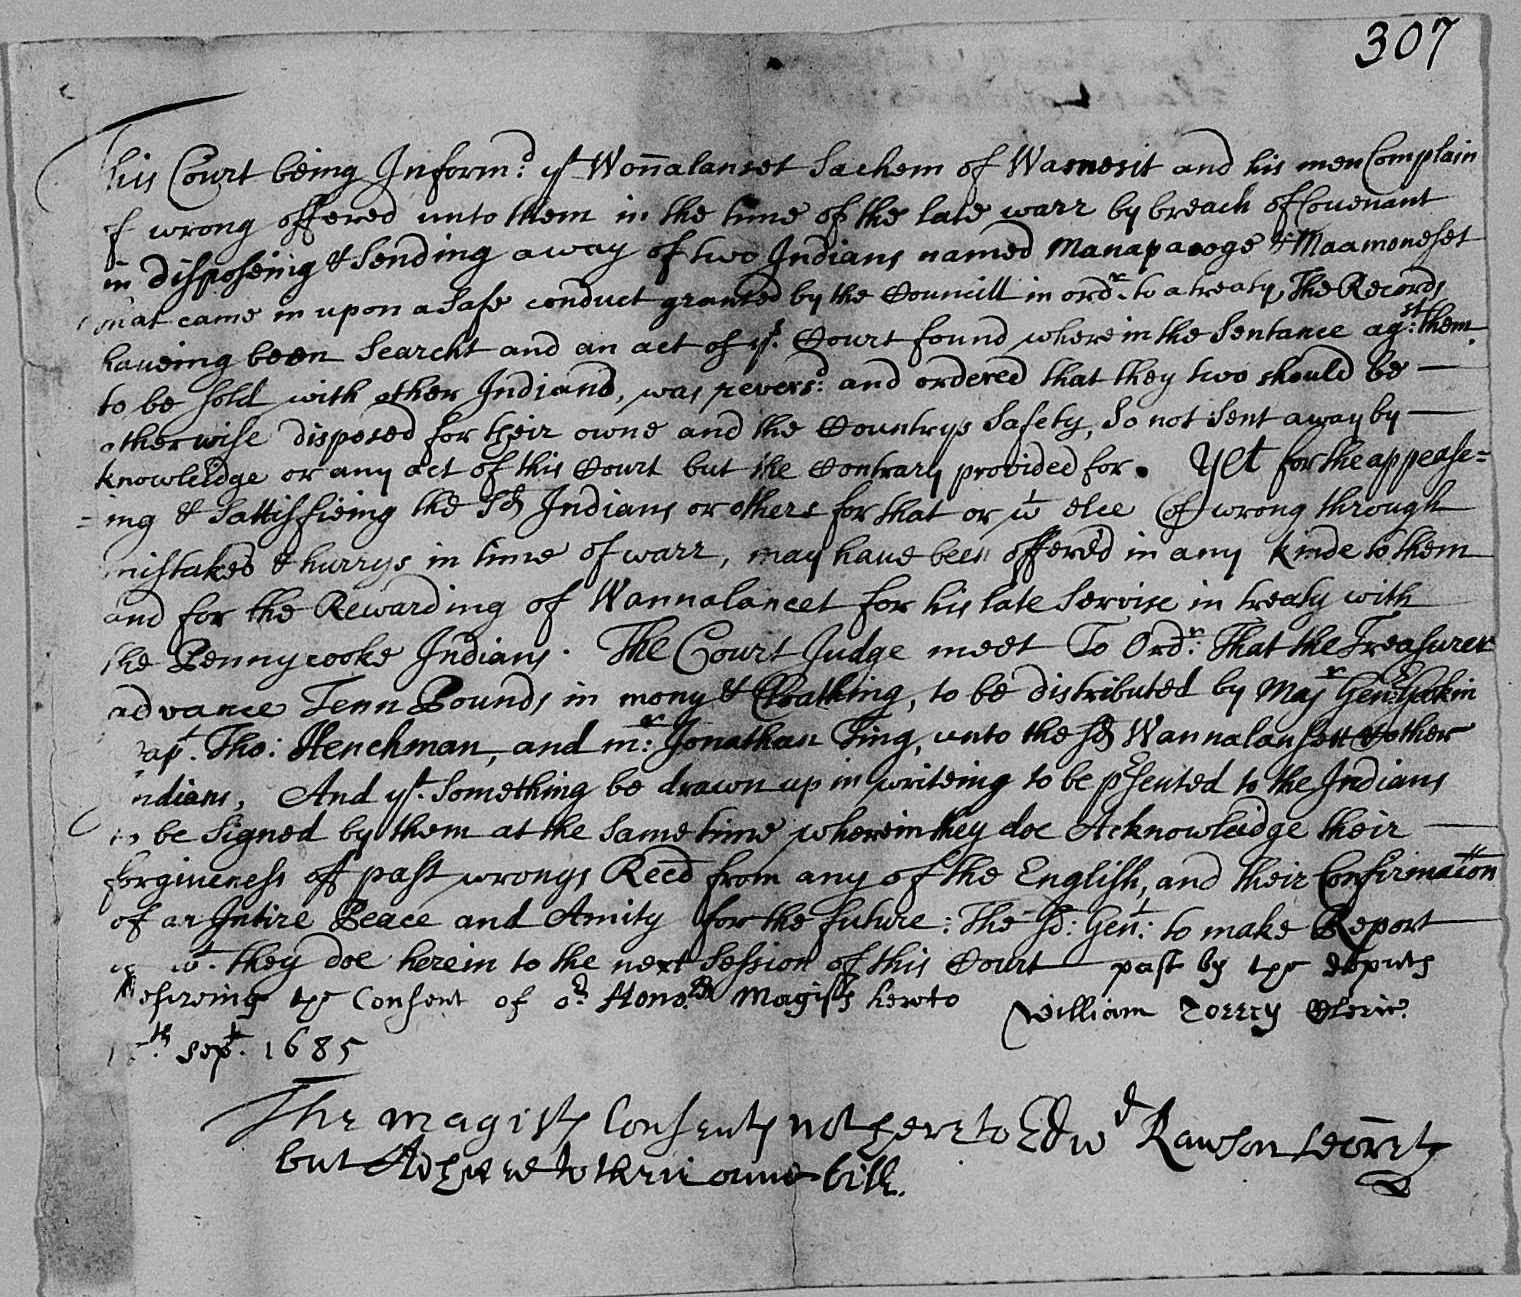 307
This Court being Inform:d yt Wonnalanset Sachem of Wamesit and his men Complain
of wrong offered unto them in the time of the late warr by breach of Covenant
in disposeing & Sending away of two Indians named Manapacoge & Maamoneset
that came in upon a Safe conduct granted by the Councill in ordr. to a treaty, The Records
haueing been Searcht and an act of ys. Court found wherein the Sentance agst: them
to be sold with other Indians, was revers:d and ordered that they two should be
otherwise disposed for their owne and the Countrys Safety, So not Sent away by
knowleidge or any act of this Court but the Contrary provided for. Yet for the appease=
=ing & Sattisfieing the sd Indians or others for that or wt else (of) wrong through
mistakes & hurrys in time of warr, may haue been offer'd in any kinde to them
and for the Rewarding of Wannalancet for his late Servise in treaty with
the Pennycooke Indians. The Court Judge meet To Ordr: That the Treasurer
advance Tenn Pounds in mony & Cloathing, to be distributed by Majr Genll Gookin
Capt. Tho: Henchman, and mr: Jonathan Ting, unto the sd Wannalansett & other
Indians, And yt. Something be drawn up in writeing to be psented to the Indians
to be Signed by them at the Same time wherein they doe Acknowleidge their
forgiueness off past wrongs Reced from any of the English, and their Confirmation
of an Intire Peace and Amity for the future: The sd: Gent: to make Report
of wt. they doe herein to the next Session of this Court past by the deputs
desireing the Consent of or Honord Magists hereto William Torrey Cleric.
th Sept. 1685
The magists Consents not hereto Edwd Rawson Secrety
but Adhere to their owne bill.